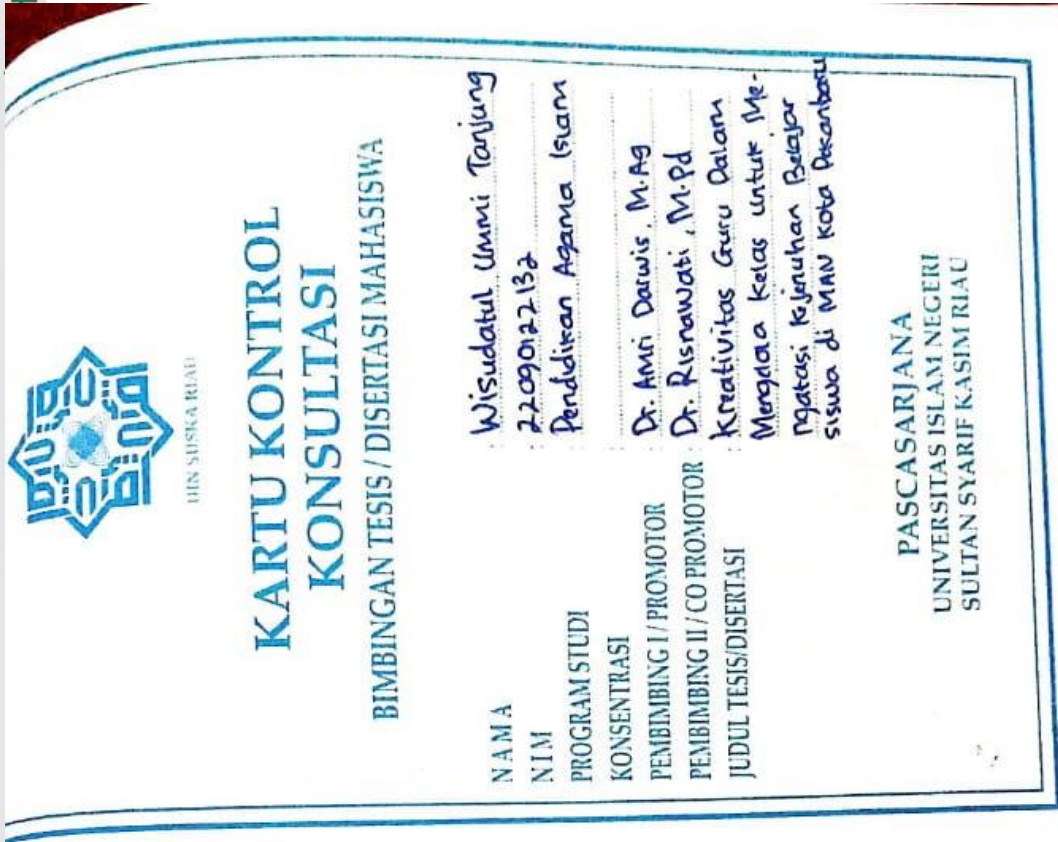 UIN SUSKA RIAU
KARTU KONTROL
KONSULTASI
BIMBINGAN TESIS / DISERTASI MAHASISWA
NAMA : Wisudatul Ummi Tanjung
NIM : 22090122132
PROGRAM STUDI : Pendidikan Agama Islam
KONSENTRASI :
PEMBIMBING I / PROMOTOR : Dr. Amri Darwis, M.Ag
PEMBIMBING II / CO PROMOTOR : Dr. Risnawati, M.Pd
JUDUL TESIS/DISERTASI : Kreativitas Guru Dalam
Mengelola Kelas untuk Me-
ngatasi Kejenuhan Belajar
siswa di MAN Kota Pekanbaru
PASCASARJANA
UNIVERSITAS ISLAM NEGERI
SULTAN SYARIF KASIM RIAU